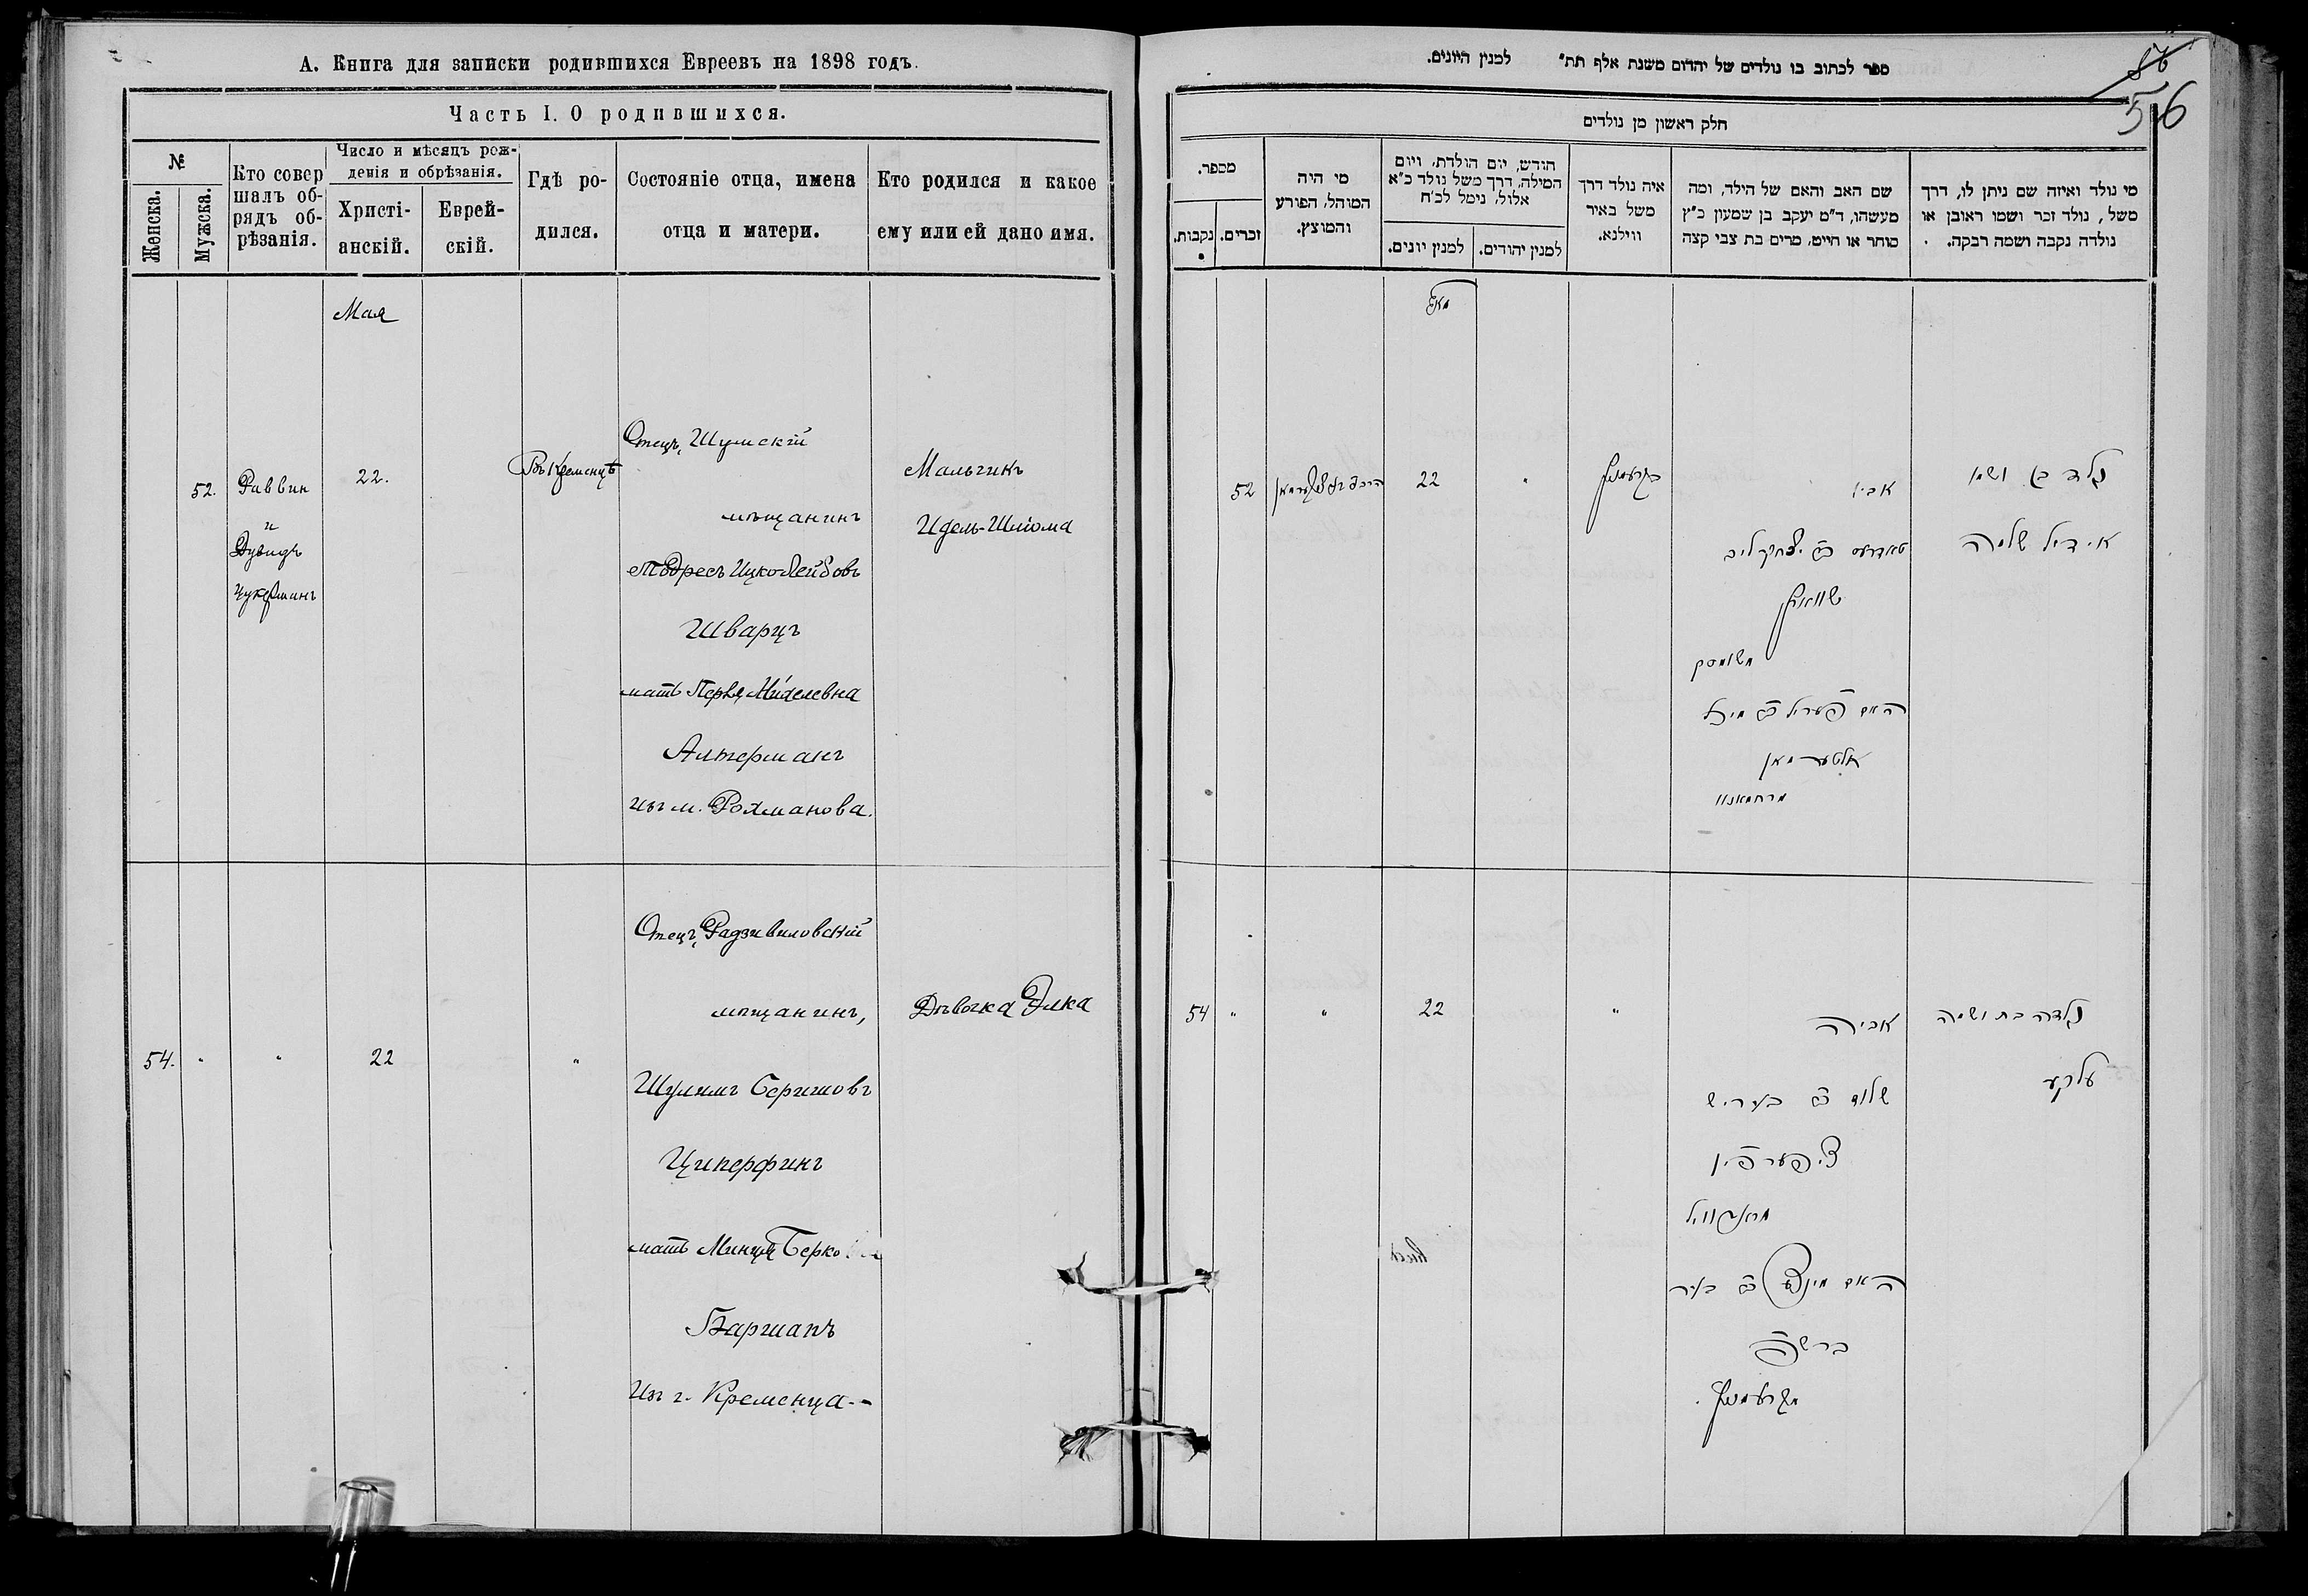 А. Книга для записки родившихся Евреевъ на 1898 годъ.
Часть I. О родившихся.
№
Женска.
Мужска.
Кто совер
шалъ об-
рядъ об-
рѣзанія.
Число и мѣсяцъ рож-
денія и обрѣзанія.
Христі-
анскій.
Еврей-
скій.
Гдѣ ро-
дился.
Состояніе отца, имена
отца и матери.
Кто родился и какое
ему или ей дано имя.
Мая
52.
Раввин
и
Дувидъ
Цукерманъ
22.
Въ Кременцѣ
Отецъ, Шумскій
мѣщанинъ
Тодресъ Ицко-Лейбовъ
Шварцъ
мать Перля Михелевна
Алтерманъ
изъ м. Рохманова.
Мальчикъ
Идель-Шлiома
54.
"
"
22
"
Отецъ, Радзивиловскій
мѣщанинъ,
Шулимъ Беришовъ
Циперфинъ
мать Минця
Баршапъ
Изъ г. Кременца.-
Дѣвочка Элка
ספר לכתוב בו נולדים של יהדום משנת אלף תת״ למנין היונים.
56
חלק ראשון מן נולדים
מספר.
נקבות.
זכרים.
מי היה
המוהל, הפורע
והמוצץ.
חודש, יום הולדת, ויום
המילה, דרך משל נולד כ״א
אלול, נימל לכ״ח
למנין יונים.
למנין יהודים.
איה נולד דרך
משל באיר
ווילנא.
שם האב והאם של הילד, ומה
מעשהו, ד״מ יעקב בן שמעון כ״ץ
סוחר או חייט, מרים בת צבי קצה
מי נולד ואיזה שם ניתן לו, דרך
משל, נולד זכר ושמו ראובן או
נולדה נקבה ושמה רבקה.
מאי
52
22
"
בקרעמניץ
אביו
טאדרעס ב״ר יצחק ליב
שווארץ
משומסק
האם פעריל ב״ר מיכל
אלטערמאן
מרחמאנוו
נולד בן ושמו
אידיל שלמה
54
"
"
22
"
אביה
שלום ב״ר בעריש
ציפערפין
מראדזוויל
האם מינצע ב״ר בער
ברשפ
מקרעמניץ.
נולדה בת ושמה
עלקע